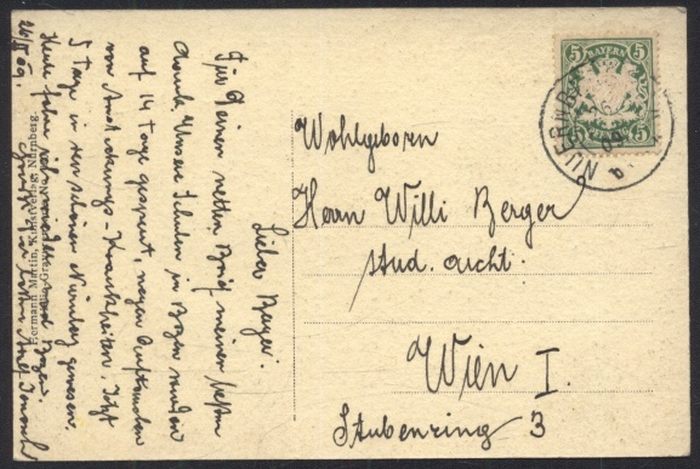 Lieber Berger.
Für Deinen netten Brief meinen besten
Dank. Unsere Schulen in Bozen wurden
auf 14 Tage gesperrt, wegen Auftreten
von Ansteckungs-Krankheiten. Jetzt
5 Tage in dem schönen Nürnberg gewesen.
Heute fahre ich wieder nach Bozen.
26/II 09.
Hermann Martin, Kunstverlag, Nürnberg.
Wohlgeborn
Herrn Willi Berger
stud. archt.
Wien I.
Stubenring 3
5 BAYERN 5
5 5
NUERNBERG